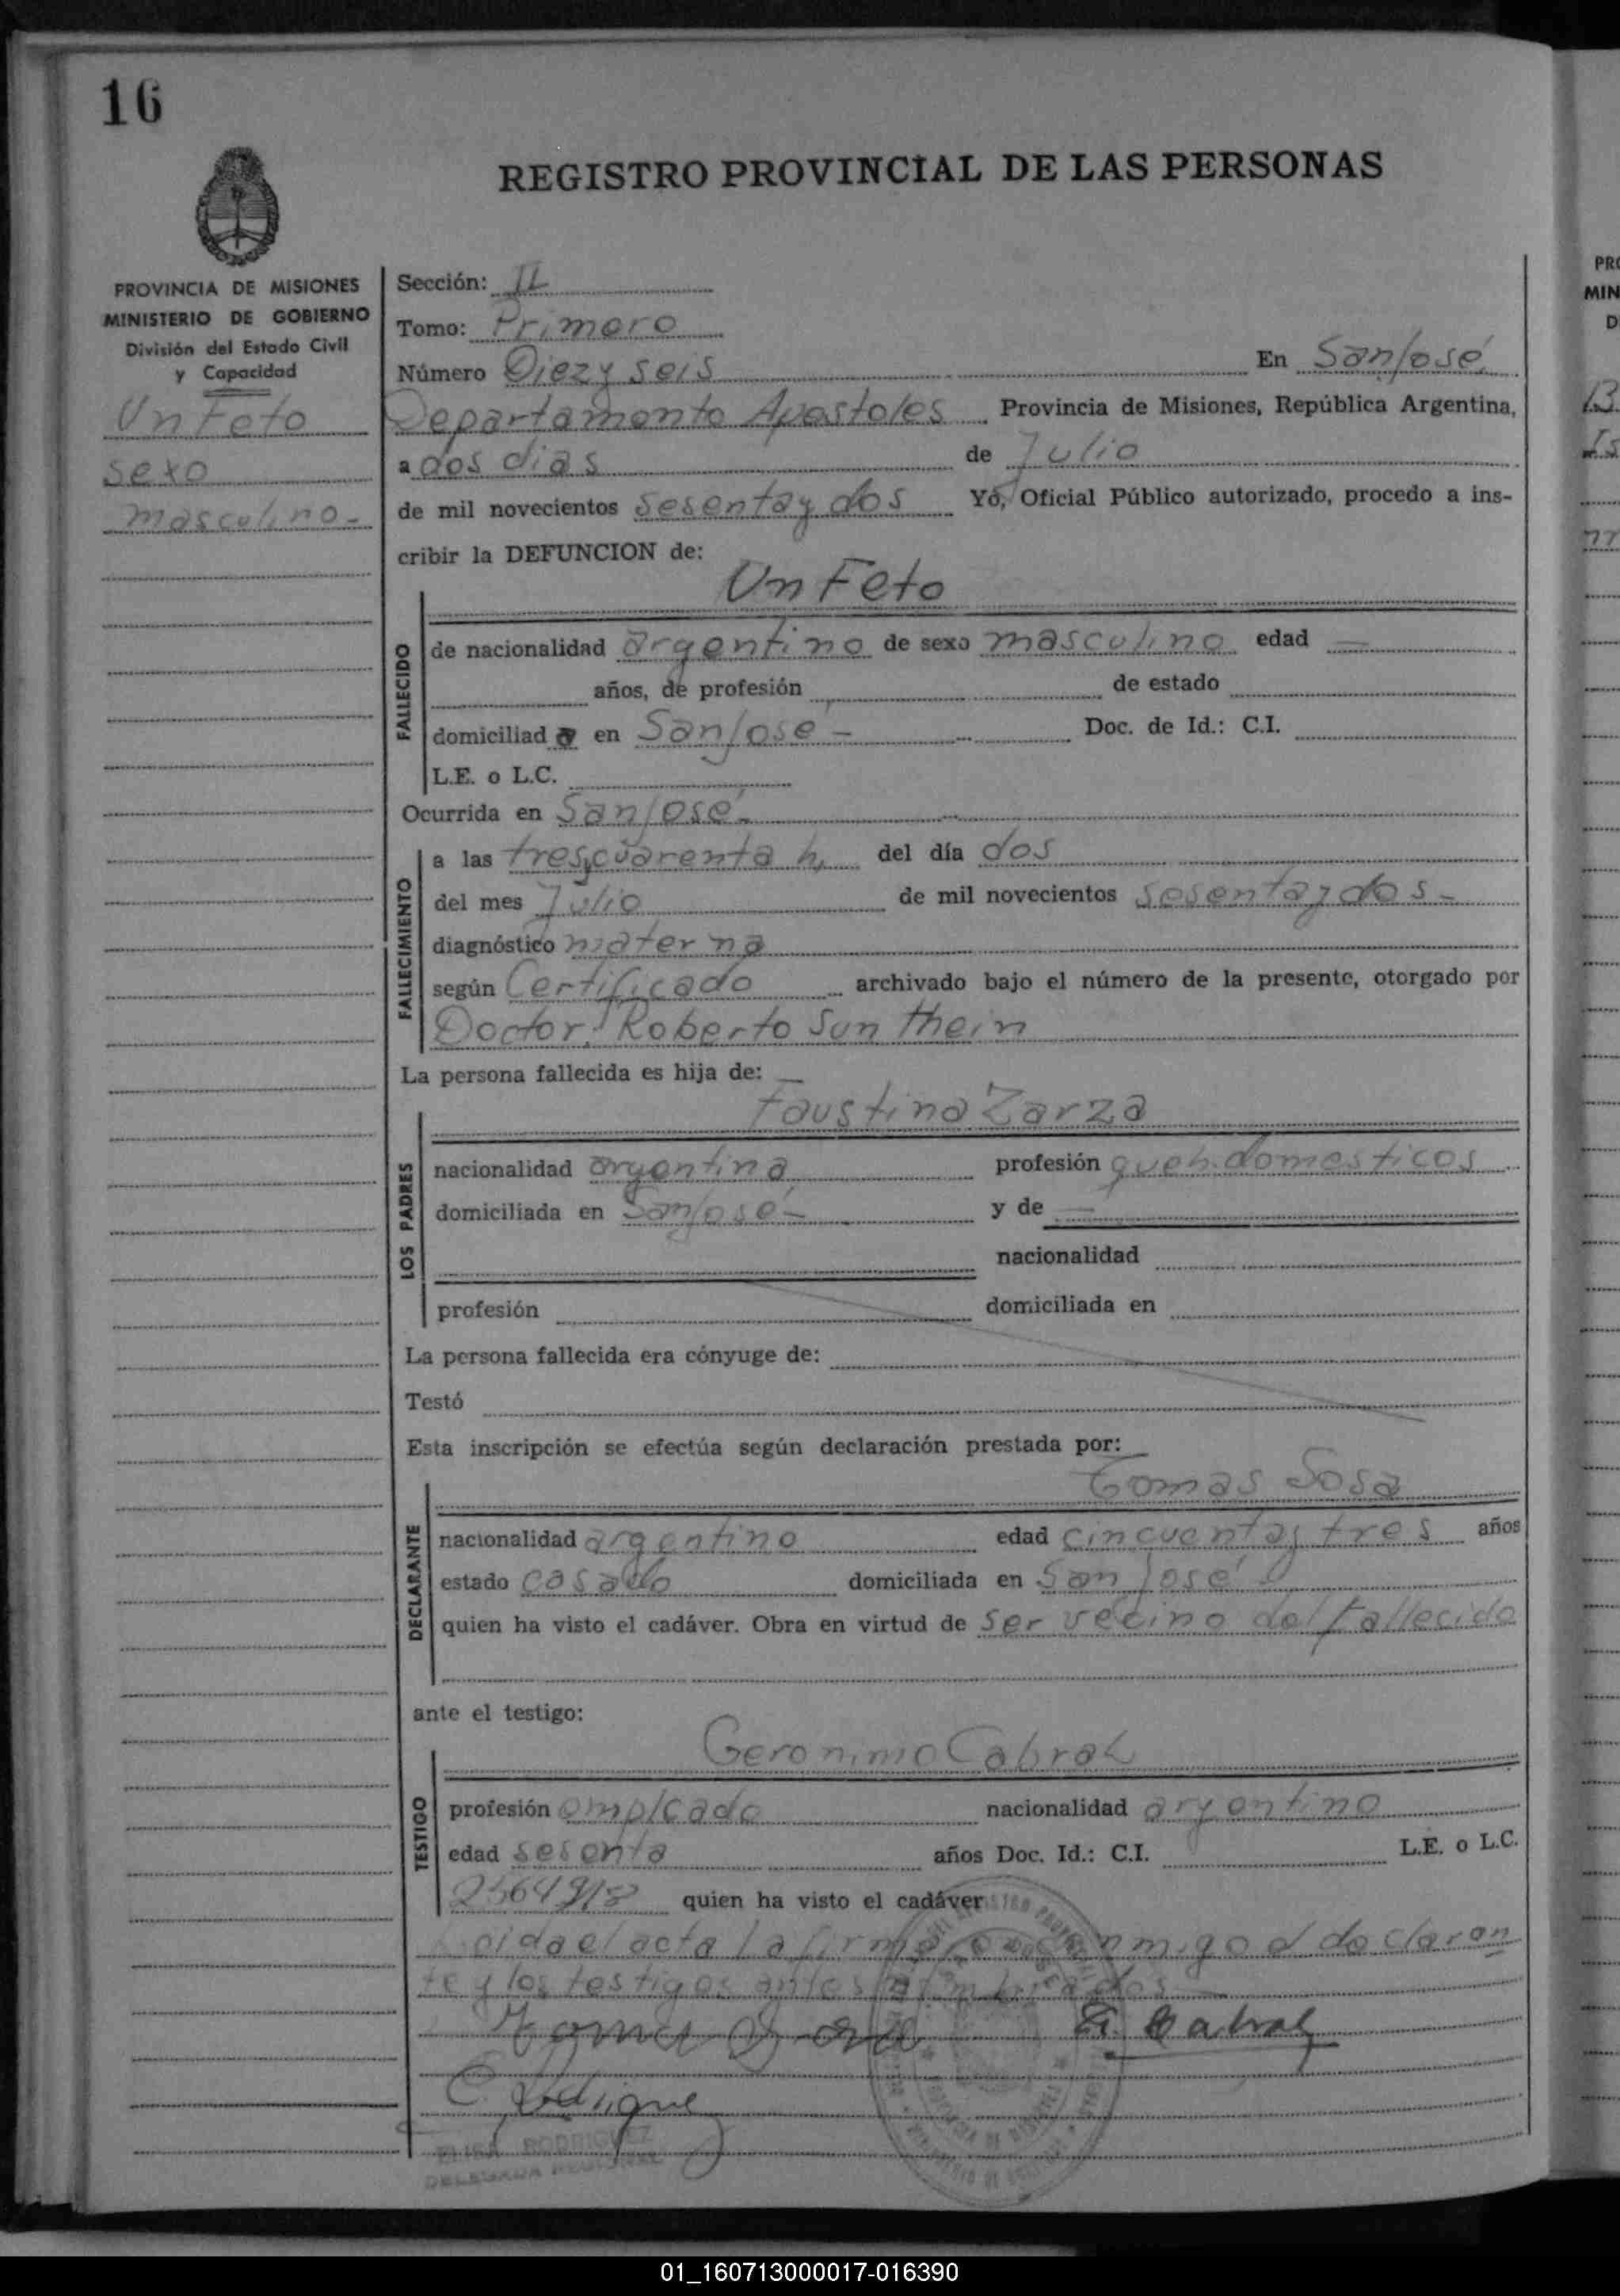 16
REGISTRO PROVINCIAL DE LAS PERSONAS
PROVINCIA DE MISIONES
MINISTERIO DE GOBIERNO
División del Estado Civil
y Capacidad
Un Feto
sexo
masculino-
Sección: II
Tomo: Primero
Número Diez y seis En San José
Departamento Apostoles Provincia de Misiones, República Argentina,
a dos dias de Julio
de mil novecientos sesenta y dos Yo, Oficial Público autorizado, procedo a ins-
cribir la DEFUNCION de:
Un Feto
FALLECIDO
de nacionalidad argentino de sexo masculino edad —
años, de profesión de estado
domiciliad a en San Jose - Doc. de Id.: C.I.
L.E. o L.C.
Ocurrida en San José-
FALLECIMIENTO
a las tres, cuarenta h, del día dos
del mes Julio de mil novecientos sesenta y dos-
diagnóstico materna
según Certificado archivado bajo el número de la presente, otorgado por
Doctor, Roberto Sun
La persona fallecida es hija de: —
Faustina Zarza
LOS PADRES
nacionalidad argentina profesión queh. domesticos
domiciliada en San José- y de —
nacionalidad
profesión domiciliada en
La persona fallecida era cónyuge de:
Testó
Esta inscripción se efectúa según declaración prestada por:
Tomas Sosa
DECLARANTE
nacionalidad argentino edad cincuenta y tres años
estado casado domiciliada en San José-
quien ha visto el cadáver. Obra en virtud de ser vecino del fallecido
ante el testigo:
Geronimo Cabral
TESTIGO
profesión empleado nacionalidad argentino
edad sesenta años Doc. Id.: C.I. L.E. o L.C.
quien ha visto el cadáver
el acta la firma conmigo el declaran
te y los testigos antes nombrados -
G. Cabral
RODRIGUEZ
DELEGADA
PRO
MIN
D
01_160713000017-016390